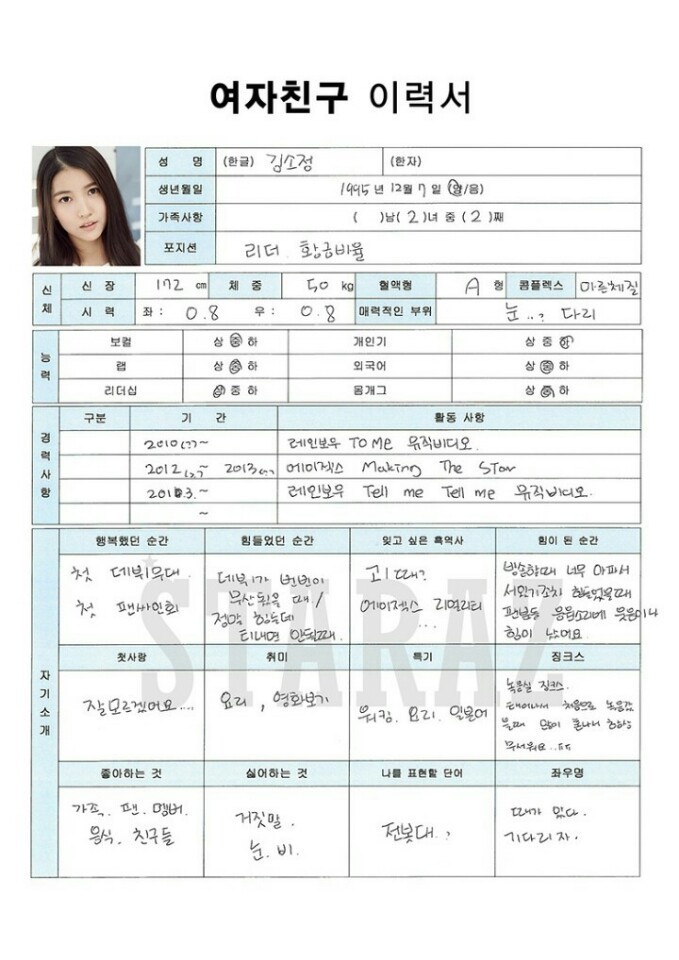 여자친구 이력서
성 명 (한글) 김소정 (한자)
생년월일 1995 년 12 월 7 일 (양/음)
가족사항 ( )남( 2 )녀 중 ( 2 )째
포지션 리더. 황금비율
신체 신 장 172 cm 체 중 50 kg 혈액형 A 형 콤플렉스 마른체질
시 력 좌 : 0.8 우 : 0.8 매력적인 부위 눈..? 다리
능력 보컬 상 중 하 개인기 상 중 하
랩 상 중 하 외국어 상 중 하
리더십 상 중 하 몸개그 상 중 하
경력사항 구분 기 간 활동 사항
2010 ~ 레인보우 TO ME 뮤직비디오.
2012 ~ 2013 에이젝스 Making The Star
3. ~ 레인보우 Tell me Tell me 뮤직비디오.
~
자기소개
행복했던 순간 힘들었던 순간 잊고 싶은 흑역사 힘이 된 순간
첫 데뷔무대.
첫 팬싸인회
데뷔가 번번이
무산됐을 때/
정말 힘든데
티내면 안될때..
고1때?
에이젝스 리얼리티
...
방송할때 너무 아파서
서있기조차 힘들었을때
팬분들 응원소리에 웃음이나
힘이 났어요..
첫사랑 취미 특기 징크스
잘모르겠어요....
요리, 영화보기
워킹. 요리. 일본어
녹음실 징크스.
태어나서 처음으로 녹음갔
을때 많이 혼나서 항상
무서워요..ㅠㅠ
좋아하는 것 싫어하는 것 나를 표현할 단어 좌우명
가족. 팬. 멤버.
음식. 친구들
거짓말.
눈. 비.
전봇대.?
때가 있다.
기다리자.
STARAZ